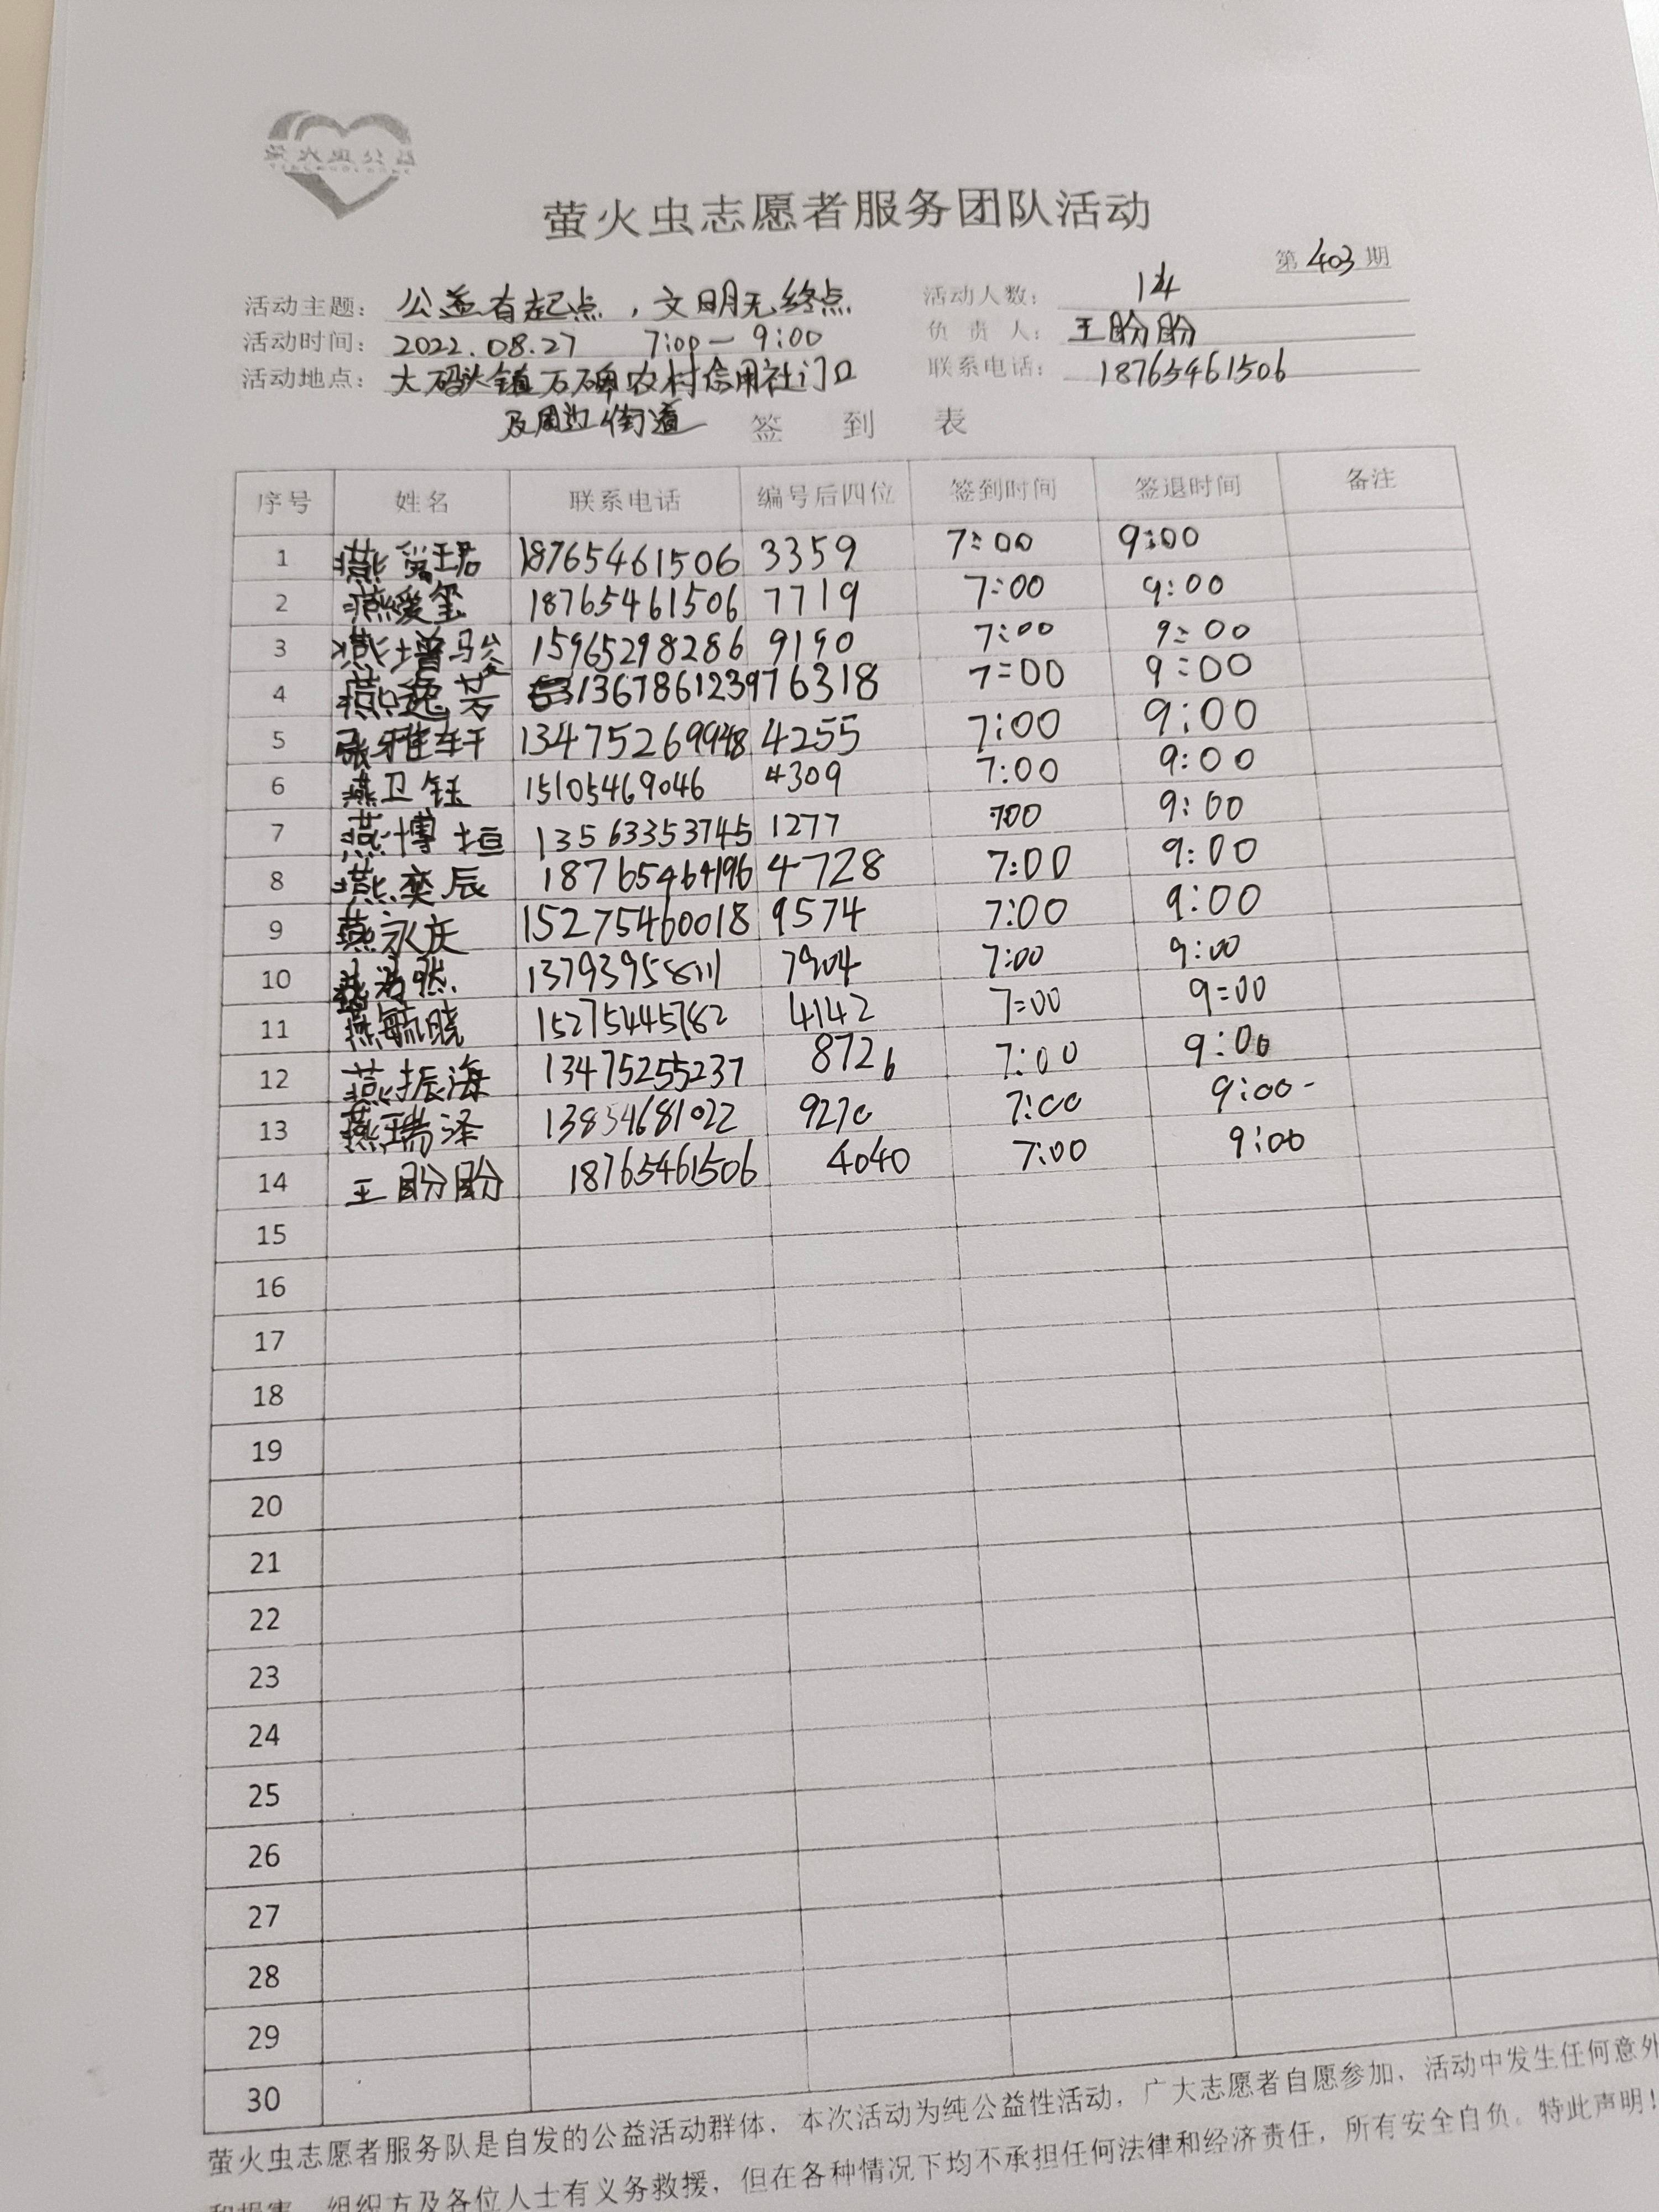 萤火虫公益
萤火虫志愿者服务团队活动
第 403 期
活动主题： 公益有起点，文明无终点 活动人数： 14
活动时间： 2022.08.27 7:00－9:00 负 责 人： 王盼盼
活动地点： 大码头镇石碑农村信用社门口 联系电话： 18765461506
及周边街道 签 到 表
序号 姓名 联系电话 编号后四位 签到时间 签退时间 备注
1 燕 珺 18765461506 3359 7:00 9:00
2 燕媛玺 18765461506 7719 7:00 9:00
3 燕增骏 15965298286 9190 7:00 9:00
4 燕逸芳 13678612397 6318 7:00 9:00
5 张雅轩 13475269948 4255 7:00 9:00
6 燕卫钰 15105469046 4309 7:00 9:00
7 燕博垣 13563353745 1277 7:00 9:00
8 燕奕辰 18765464196 4728 7:00 9:00
9 燕永庆 15275460018 9574 7:00 9:00
10 然 13793958111 7904 7:00 9:00
11 燕毓晓 15275445782 4142 7:00 9:00
12 燕振海 13475255237 8726 7:00 9:00
13 燕瑞泽 13854681022 9270 7:00 9:00
14 王盼盼 18765461506 4040 7:00 9:00
15
16
17
18
19
20
21
22
23
24
25
26
27
28
29
30
萤火虫志愿者服务队是自发的公益活动群体，本次活动为纯公益性活动，广大志愿者自愿参加，活动中发生任何意外
和损害，组织方及各位人士有义务救援，但在各种情况下均不承担任何法律和经济责任，所有安全自负。特此声明！